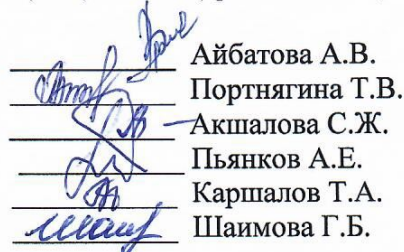 Айбатова А.В.
Портнягина Т.В.
Акшалова С.Ж.
Пьянков А.Е.
Каршалов Т.А.
Шаимова Г.Б.